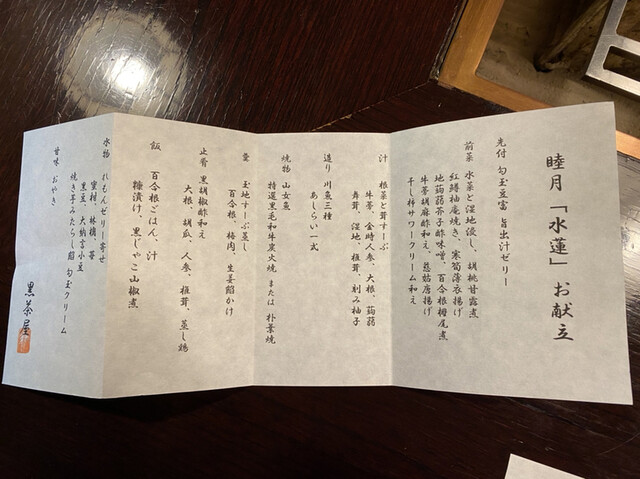 睦月「水蓮」お献立
先付 勾玉豆富 旨出汁ゼリー
前菜 水菜と湿地浸し、胡桃甘露煮
紅鱒柚庵焼き、寒筍薄衣揚げ
地蒟蒻芥子酢味噌、百合根梅尾煮
牛蒡胡麻酢和え、慈姑唐揚げ
干し柿サワークリーム和え
汁 根菜と茸すーぷ
牛蒡、金時人参、大根、蒟蒻
舞茸、湿地、椎茸、刻み柚子
造り 川魚三種
あしらい一式
焼物 山女魚
特選黒毛和牛炭火焼 または 朴葉焼
羹 玉地すーぷ蒸し
百合根、梅肉、生姜餡かけ
止肴 黒胡椒酢和え
大根、胡瓜、人参、椎茸、蒸し鶏
飯 百合根ごはん、汁
糠漬け、黒じゃこ山椒煮
水物 れもんゼリー寄せ
蜜柑、林檎、苺
黒豆、大納言小豆
焼き芋みたらし餡 勾玉クリーム
甘味 おやき
黒茶屋